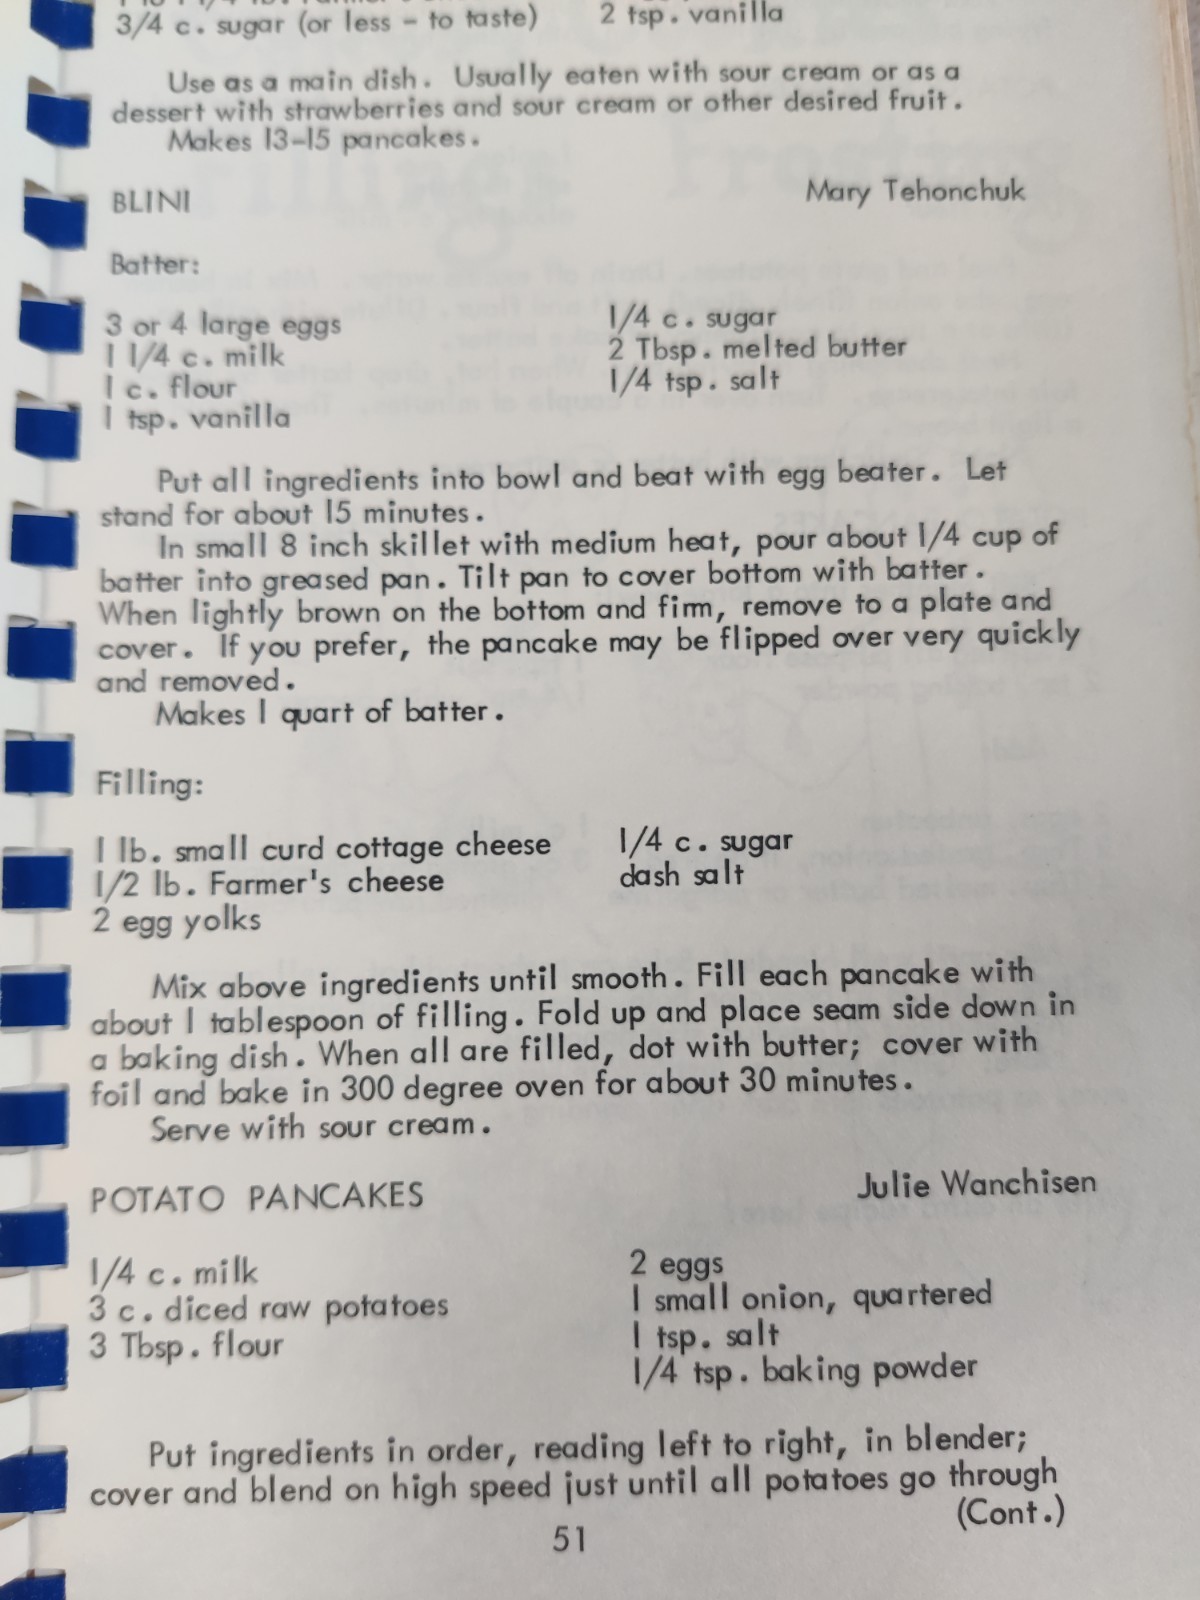 3/4 c. sugar (or less - to taste) 2 tsp. vanilla
Use as a main dish. Usually eaten with sour cream or as a
dessert with strawberries and sour cream or other desired fruit.
Makes 13-15 pancakes.
BLINI Mary Tehonchuk
Batter:
3 or 4 large eggs 1/4 c. sugar
1 1/4 c. milk 2 Tbsp. melted butter
1 c. flour 1/4 tsp. salt
1 tsp. vanilla
Put all ingredients into bowl and beat with egg beater. Let
stand for about 15 minutes.
In small 8 inch skillet with medium heat, pour about 1/4 cup of
batter into greased pan. Tilt pan to cover bottom with batter.
When lightly brown on the bottom and firm, remove to a plate and
cover. If you prefer, the pancake may be flipped over very quickly
and removed.
Makes 1 quart of batter.
Filling:
1 lb. small curd cottage cheese 1/4 c. sugar
1/2 lb. Farmer's cheese dash salt
2 egg yolks
Mix above ingredients until smooth. Fill each pancake with
about 1 tablespoon of filling. Fold up and place seam side down in
a baking dish. When all are filled, dot with butter; cover with
foil and bake in 300 degree oven for about 30 minutes.
Serve with sour cream.
POTATO PANCAKES Julie Wanchisen
1/4 c. milk 2 eggs
3 c. diced raw potatoes 1 small onion, quartered
3 Tbsp. flour 1 tsp. salt
1/4 tsp. baking powder
Put ingredients in order, reading left to right, in blender;
cover and blend on high speed just until all potatoes go through
(Cont.)
51